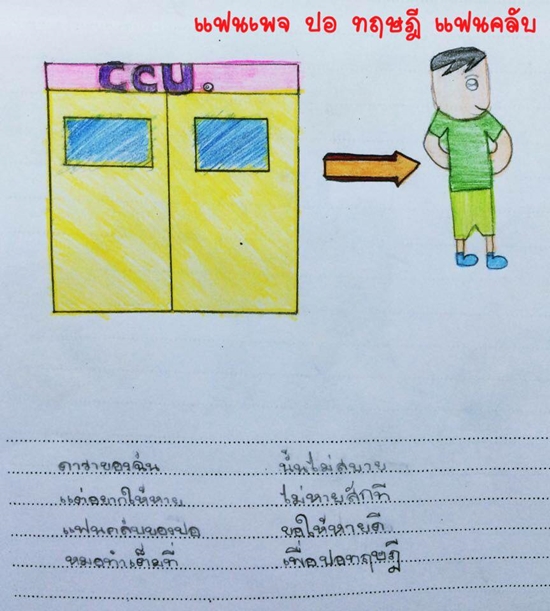 แฟนเพจ ปอ ทฤษฎี แฟนคลับ
CCU.
ดาราของฉัน นั้นไม่สบาย
แต่อยากให้หาย ไม่หายสักที
แฟนคลับของปอ ขอให้หายดี
หมอทำเต็มที่ เพื่อปอทฤษฎี